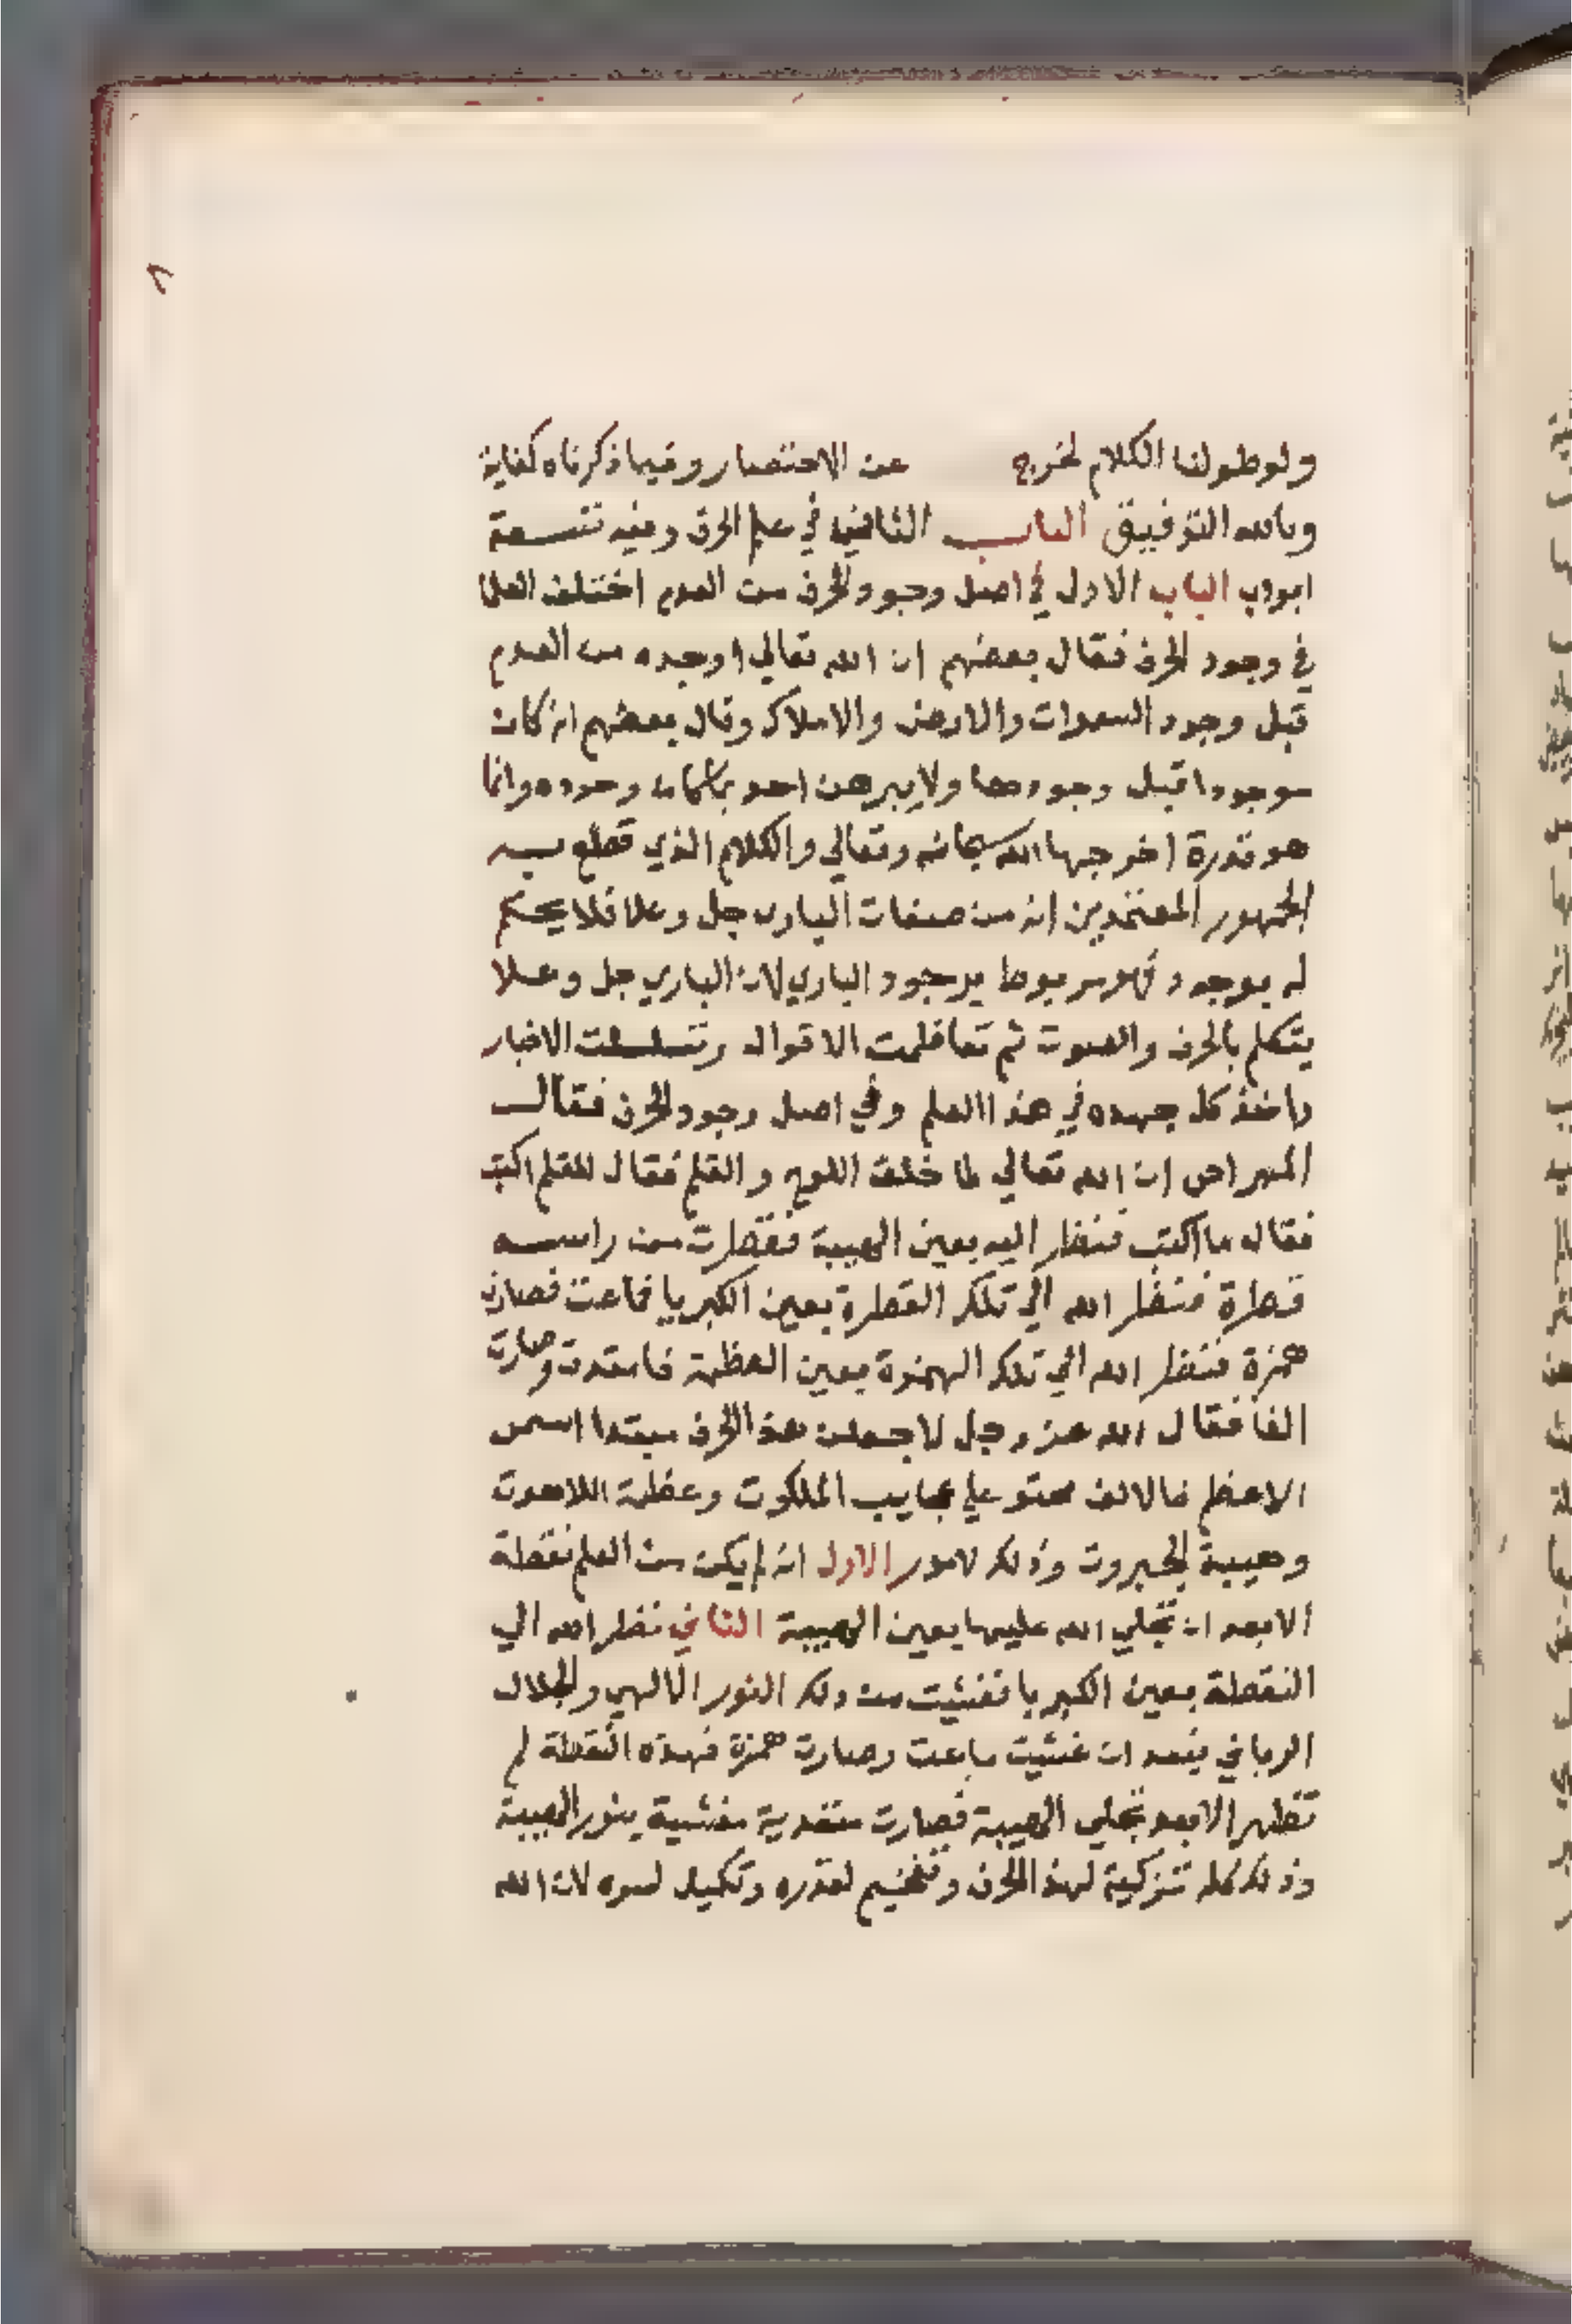 ٨
ولوطولنا الكلام لخرج عن الاختصار وفيما ذكرناه كفاية
وبالله التوفيق الباب الثاني في علم الحرف وفيه تسعة
ابواب الباب الاول في اصل وجود الحرف من العدم اختلف العلما
في وجود الحرف فقال بعضهم ان الله تعالي اوجده من العدم
قبل وجود السموات والارض والاملاك وقال بعضهم انه كان
موجودا قبل وجودها ولا يبرهن احد وجوده وانما
هو قدرة اخرجها الله سبحانه وتعالي والكلام الذي قطع به
الجمهور المعتمدين انه من صفات الباري جل وعلا فلا يحكم
له بوجود فهو مربوط بوجود الباري لان الباري جل وعلا
يتكلم بالحرف والصوت ثم تعاظمت الاقوال وتسلسلت الاخبار
واخذ كل جهده في هذا العلم وفي اصل وجود الحرف فقال
ان الله تعالي لما خلق اللوح والقلم فقال للقلم اكتب
فقال ما اكتب فنظر اليه بعين الهيبة فقطرت من راسه
قطرة فنظر الله الي تلك القطرة بعين الكبريا فماعت فصارت
همزة فنظر الله الي تلك الهمزة بعين العظمة فامتدت وصارت
الفا فقال الله عز وجل لاجعلن هذا الحرف مبتدا اسمي
الاعظم فالالف محتو علي عجايب الملكوت وعظمة اللاهوت
وهيبة الجبروت وذلك لامور الاول انه لم يكن من القلم نقطة
الا بعد ان تجلي الله عليها بعين الهيبة الثاني نظر الله الي
النقطة بعين الكبريا فغشيت من ذلك النور الالهي والجلال
الرباني فبعد ان غشيت ماعت وصارت همزة فهذه النقطة لم
تظهر الا بعد تجلي الهيبة فصارت مغشية بنور الهيبة
وذلك كله تزكية لهذا الحرف وتفخيم لقدره وتكميل لسره لان الله